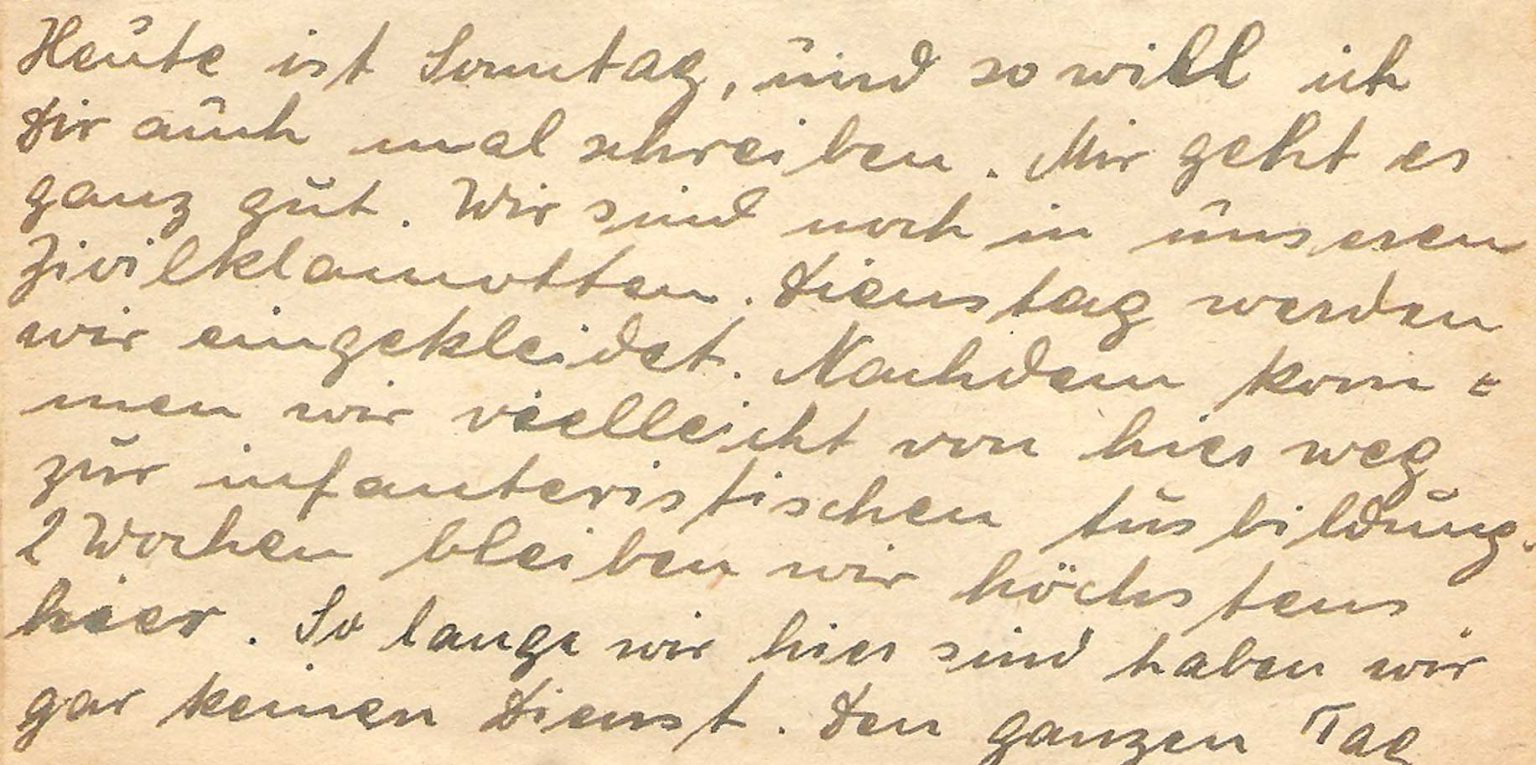 Heute ist Sonntag, und so will ich
Dir auch mal schreiben. Mir geht es
ganz gut. Wir sind noch in unseren
Zivilklamotten. Dienstag werden
wir eingekleidet. Nachdem kom=
men wir vielleicht von hier weg
zur infanteristischen Ausbildung.
2 Wochen bleiben wir höchstens
hier. So lange wir hier sind haben wir
gar keinen Dienst. Den ganzen Tag